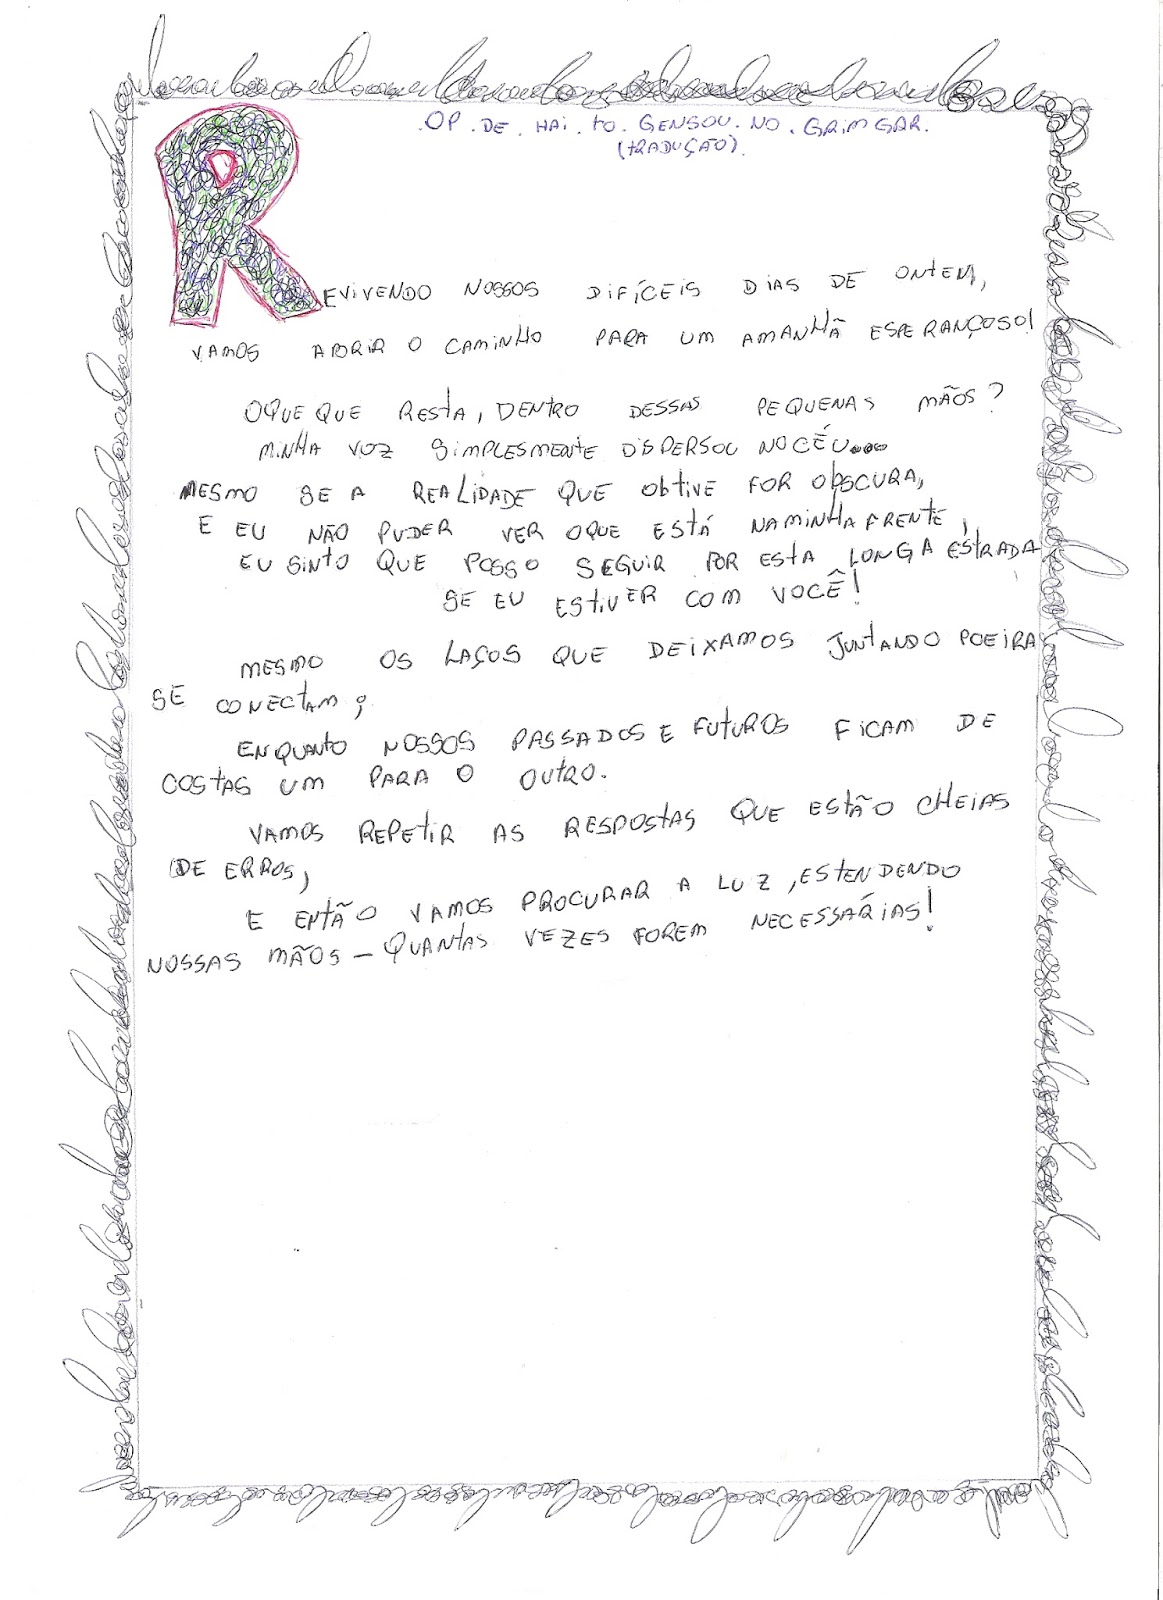 .OP.DE.HAI.TO.GENSOU.NO.GRIMGAR.
(TRADUÇÃO).
REVIVENDO NOSSOS DIFÍCEIS DIAS DE ONTEM,
VAMOS ABRIR O CAMINHO PARA UM AMANHÃ ESPERANÇOSO!
OQUE QUE RESTA, DENTRO DESSAS PEQUENAS MÃOS?
MINHA VOZ SIMPLESMENTE DISPERSOU NO CÉU...
MESMO SE A REALIDADE QUE OBTIVE FOR OBSCURA,
E EU NÃO PUDER VER OQUE ESTÁ NA MINHA FRENTE,
EU SINTO QUE POSSO SEGUIR POR ESTA LONGA ESTRADA
SE EU ESTIVER COM VOCÊ!
MESMO OS LAÇOS QUE DEIXAMOS JUNTANDO POEIRA
SE CONECTAM;
ENQUANTO NOSSOS PASSADOS E FUTUROS FICAM DE
COSTAS UM PARA O OUTRO.
VAMOS REPETIR AS RESPOSTAS QUE ESTÃO CHEIAS
DE ERROS,
E ENTÃO VAMOS PROCURAR A LUZ, ESTENDENDO
NOSSAS MÃOS - QUANTAS VEZES FOREM NECESSÁRIAS!